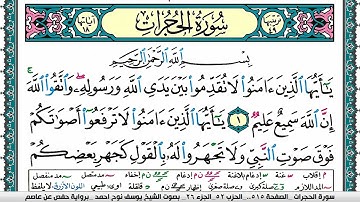 ترتيبها ٤٩ سُورَةُ الْحُجُرَاتِ آياتها ١٨
بِسْمِ اللَّهِ الرَّحْمَٰنِ الرَّحِيمِ
يَٰٓأَيُّهَا الَّذِينَ ءَامَنُوا۟ لَا تُقَدِّمُوا۟ بَيْنَ يَدَىِ اللَّهِ وَرَسُولِهِۦ ۖ وَاتَّقُوا۟ اللَّهَ ۚ
إِنَّ اللَّهَ سَمِيعٌ عَلِيمٌ ١ يَٰٓأَيُّهَا الَّذِينَ ءَامَنُوا۟ لَا تَرْفَعُوٓا۟ أَصْوَٰتَكُمْ
فَوْقَ صَوْتِ النَّبِىِّ وَلَا تَجْهَرُوا۟ لَهُۥ بِالْقَوْلِ كَجَهْرِ بَعْضِكُمْ
سورة الحجرات الصفحة ٥١٥ الحزب ٥٢ الجزء ٢٦ بصوت الشيخ يوسف نوح احمد برواية حفص عن عاصم